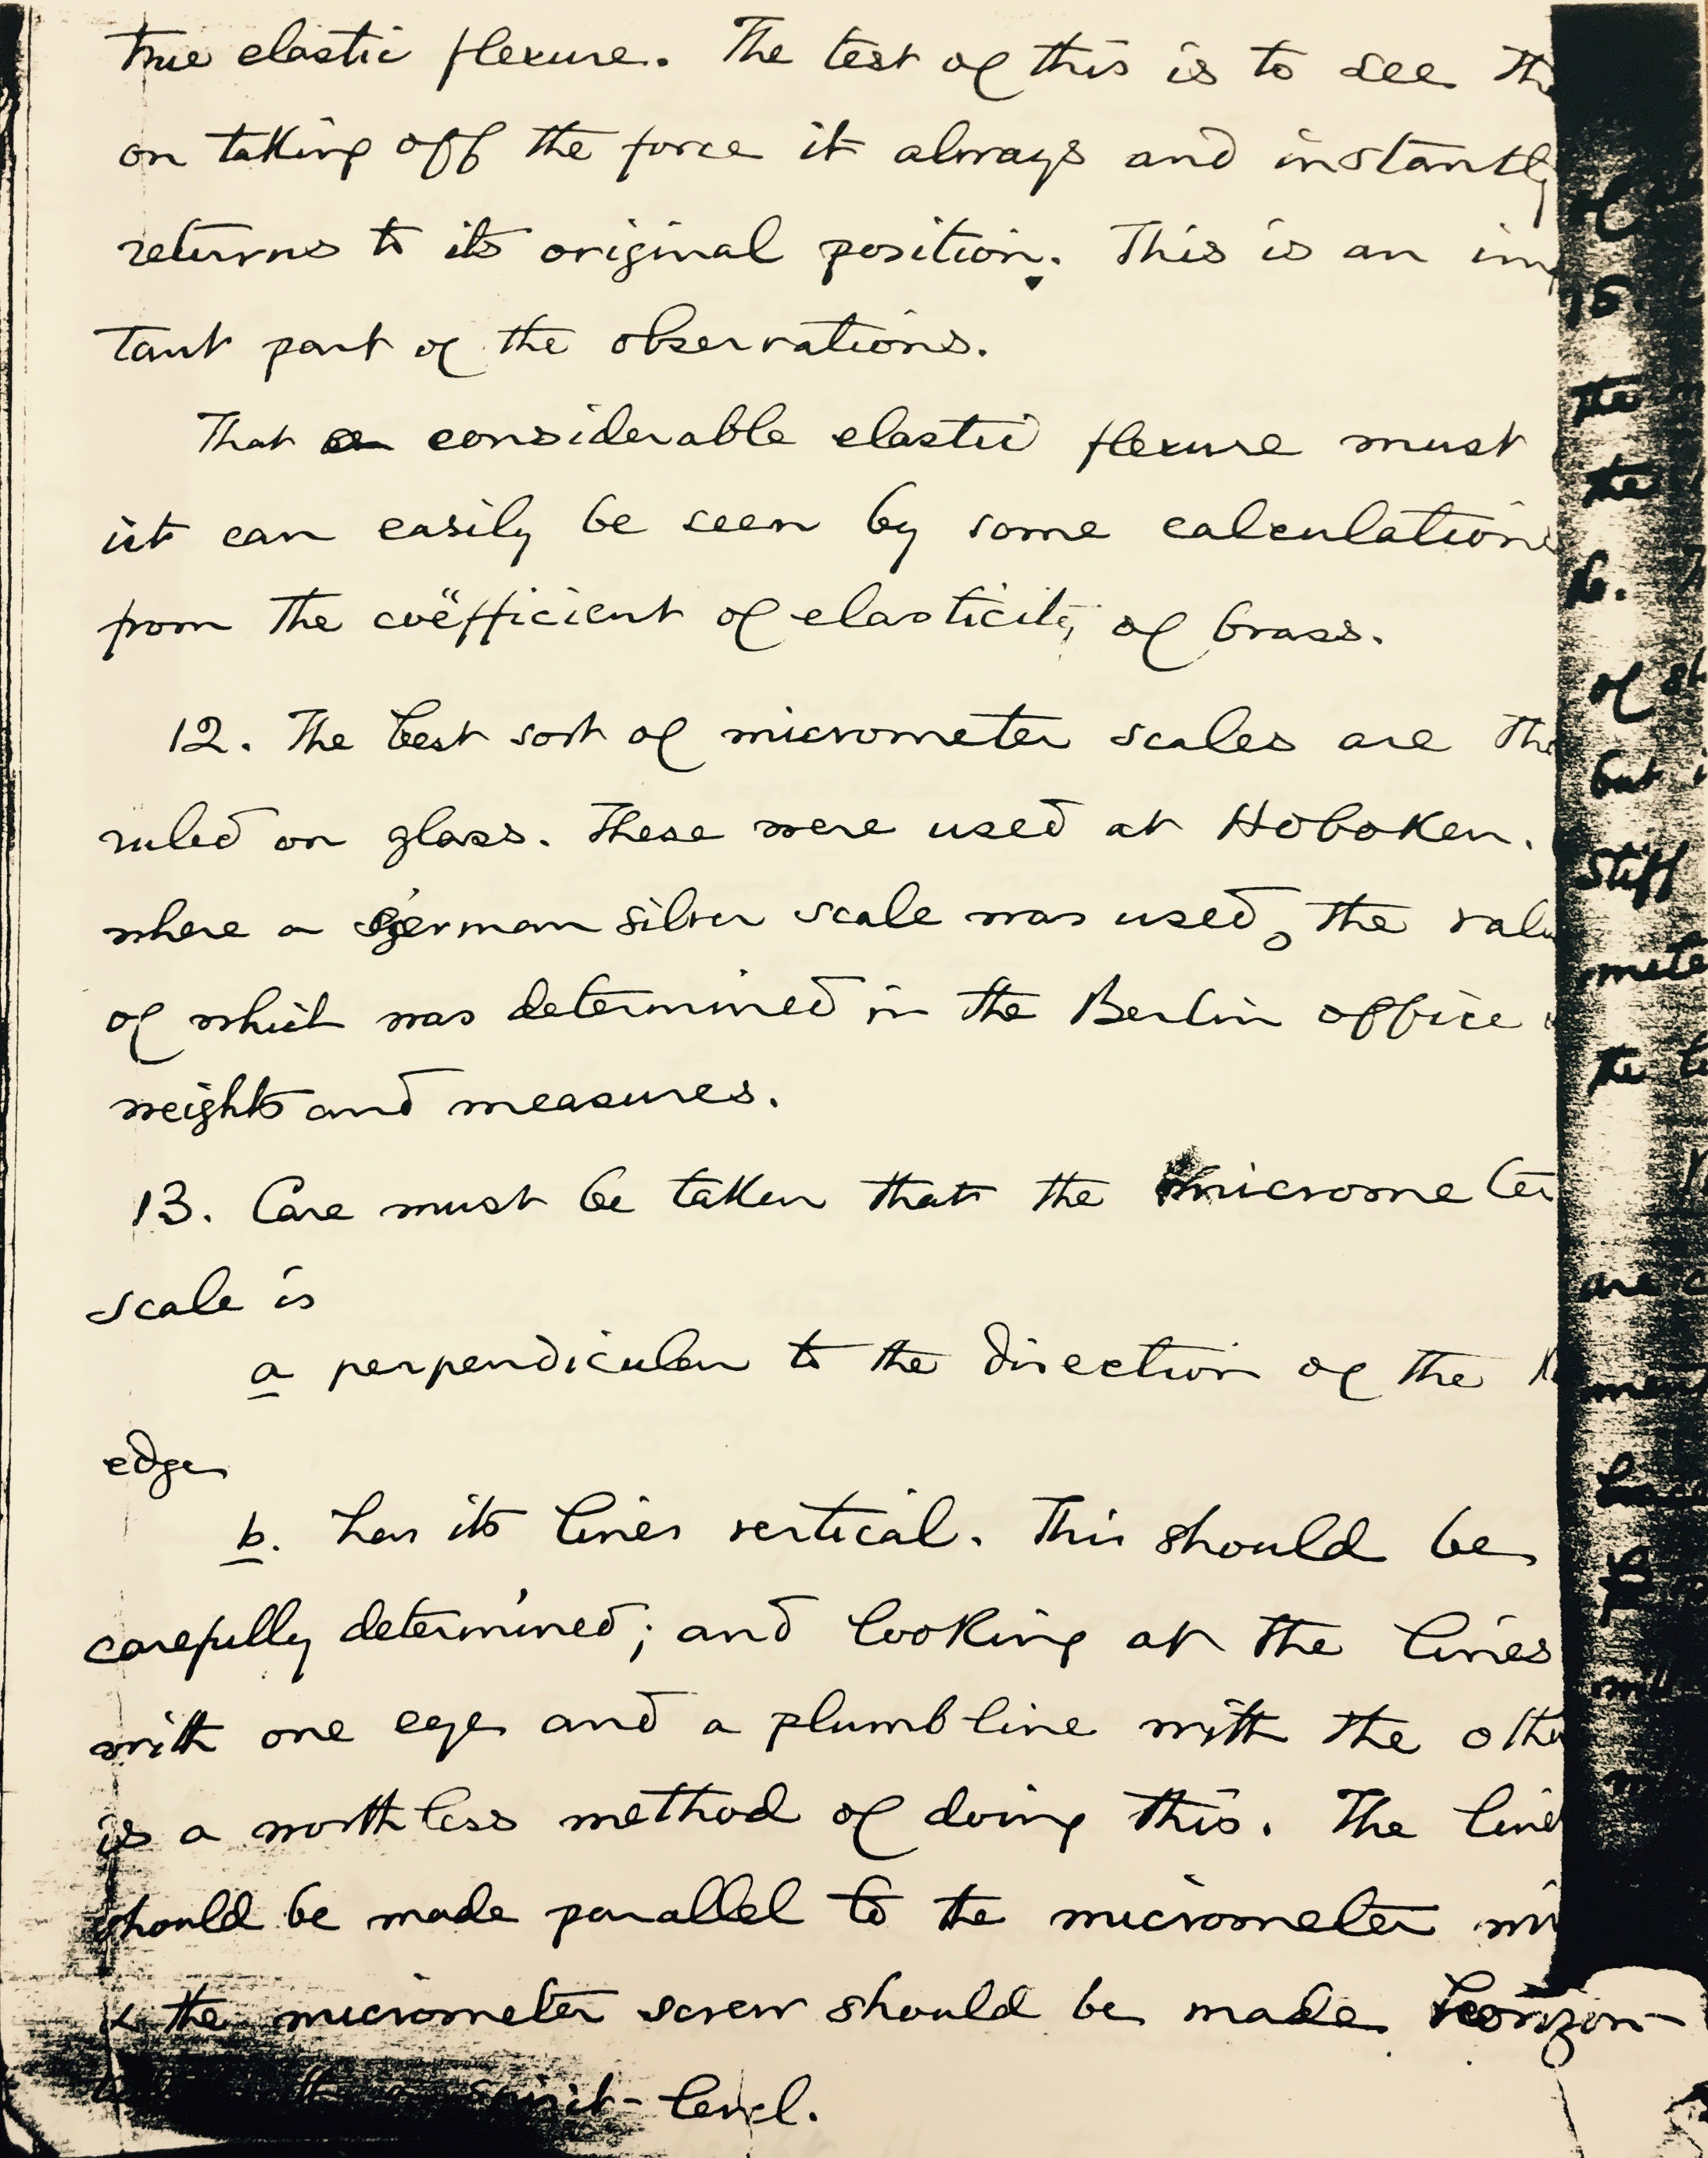 true elastic flexure. The test of this is to see th
on taking off the force it always and instantly
returns to its original position. This is an imp
tant part of the observations.
That considerable elastic flexure must
ist can easily be seen by some calculations
from the coëfficient of elasticity of brass.
12. The best sort of micrometer scales are tho
ruled on glass. These were used at Hoboken.
where a german silver scale was used, the valu
of which was determined in the Berlin office
weights and measures.
13. Care must be taken that the micrometer
scale is
a perpendicular to the direction of the
edge
b. has its lines vertical. This should be
carefully determined; and looking at the lines
with one eye and a plumb line with the othe
is a worthless method of doing this. The line
should be made parallel to the micrometer wi
& the micrometer screw should be made horizon-
spirit-level.
of
15
the
the
b.
of st
but i
stiff
mete
the
are
men